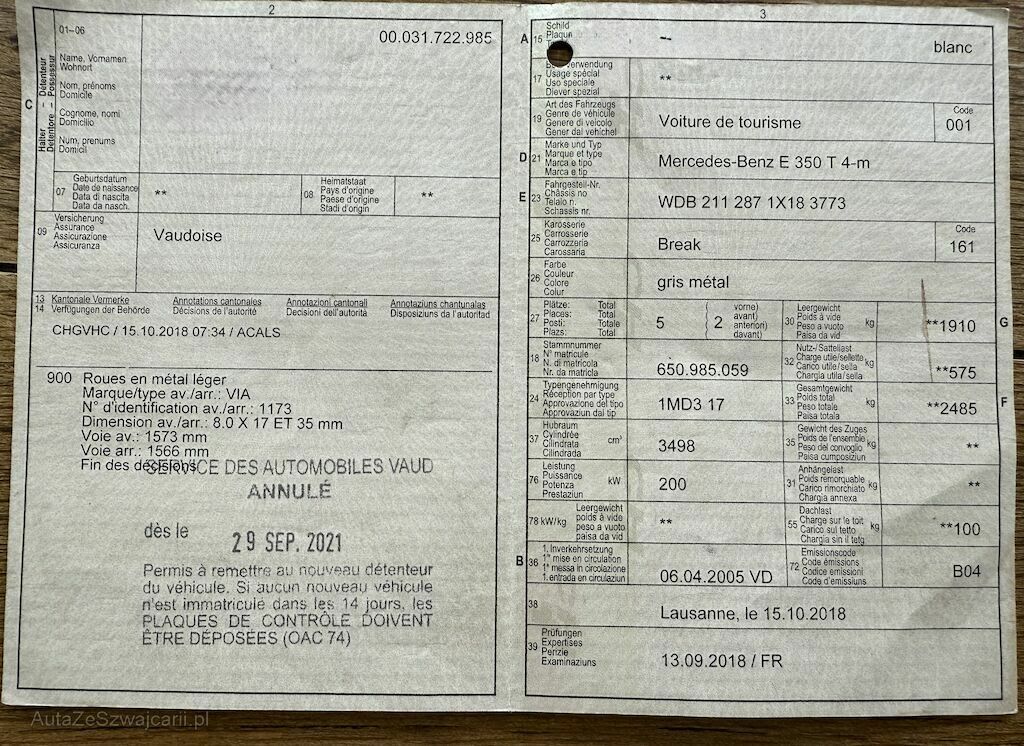 2
01–06
00.031.722.985
Name, Vornamen
Wohnort
Nom, prénoms
Domicile
Cognome, nomi
Domicilio
Num, prenums
Domicil
C
Halter – Détenteur
Detentore – Possessur
07
Geburtsdatum
Date de naissance
Data di nascita
Data da nasch.
**
08
Heimatstaat
Pays d'origine
Paese d'origine
Stadi d'origin
**
09
Versicherung
Assurance
Assicurazione
Assicuranza
Vaudoise
13
14
Kantonale Vermerke
Verfügungen der Behörde
Annotations cantonales
Décisions de l'autorité
Annotazioni cantonali
Decisioni dell'autorità
Annotaziuns chantunalas
Disposiziuns da l'autoritad
CHGVHC / 15.10.2018 07:34 / ACALS
900 Roues en métal léger
Marque/type av./arr.: VIA
N° d'identification av./arr.: 1173
Dimension av./arr.: 8.0 X 17 ET 35 mm
Voie av.: 1573 mm
Voie arr.: 1566 mm
Fin des décisions
SERVICE DES AUTOMOBILES VAUD
ANNULÉ
dès le
29 SEP. 2021
Permis à remettre au nouveau détenteur
du véhicule. Si aucun nouveau véhicule
n'est immatriculé dans les 14 jours, les
PLAQUES DE CONTRÔLE DOIVENT
ÊTRE DÉPOSÉES (OAC 74)
3
A
15
Schild
Plaque
--
blanc
17
verwendung
Usage spécial
Uso speciale
Diever spezial
**
19
Art des Fahrzeugs
Genre de véhicule
Genere di veicolo
Gener dal vehichel
Voiture de tourisme
Code
001
D
21
Marke und Typ
Marque et type
Marca e tipo
Marca e tip
Mercedes-Benz E 350 T 4-m
E
23
Fahrgestell-Nr.
Châssis no
Telaio n.
Schassis nr.
WDB 211 287 1X18 3773
25
Karosserie
Carrosserie
Carrozzeria
Carossaria
Break
Code
161
26
Farbe
Couleur
Colore
Colur
gris métal
27
Plätze: Total
Places: Total
Posti: Totale
Plazs: Total
5
2
vorne)
avant)
anteriori)
davant)
30
Leergewicht
Poids à vide
Peso a vuoto
Paisa da vid
kg
**1910
G
18
Stammnummer
N° matricule
N. di matricola
Nr. da matricla
650.985.059
32
Nutz-/Sattellast
Charge utile/sellette
Carico utile/sella
Chargia utila/sella
kg
**575
24
Typengenehmigung
Réception par type
Approvazione del tipo
Approvaziun dal tip
1MD3 17
33
Gesamtgewicht
Poids total
Peso totale
Paisa totala
kg
**2485
F
37
Hubraum
Cylindrée
Cilindrata
Cilindrada
cm³
3498
35
Gewicht des Zuges
Poids de l'ensemble
Peso del convoglio
Paisa cumposiziun
kg
**
76
Leistung
Puissance
Potenza
Prestaziun
kW
200
31
Anhängelast
Poids remorquable
Carico rimorchiato
Chargia annexa
kg
**
78
kW/kg
Leergewicht
poids à vide
peso a vuoto
paisa da vid
**
55
Dachlast
Charge sur le toit
Carico sul tetto
Chargia sin il tetg
kg
**100
B
36
1. Inverkehrsetzung
1re mise en circulation
1a messa in circolazione
1. entrada en circulaziun
06.04.2005 VD
72
Emissionscode
Code émissions
Codice emissioni
Code d'emissiuns
B04
38
Lausanne, le 15.10.2018
39
Prüfungen
Expertises
Perizie
Examinaziuns
13.09.2018 / FR
AutaZeSzwajcarii.pl